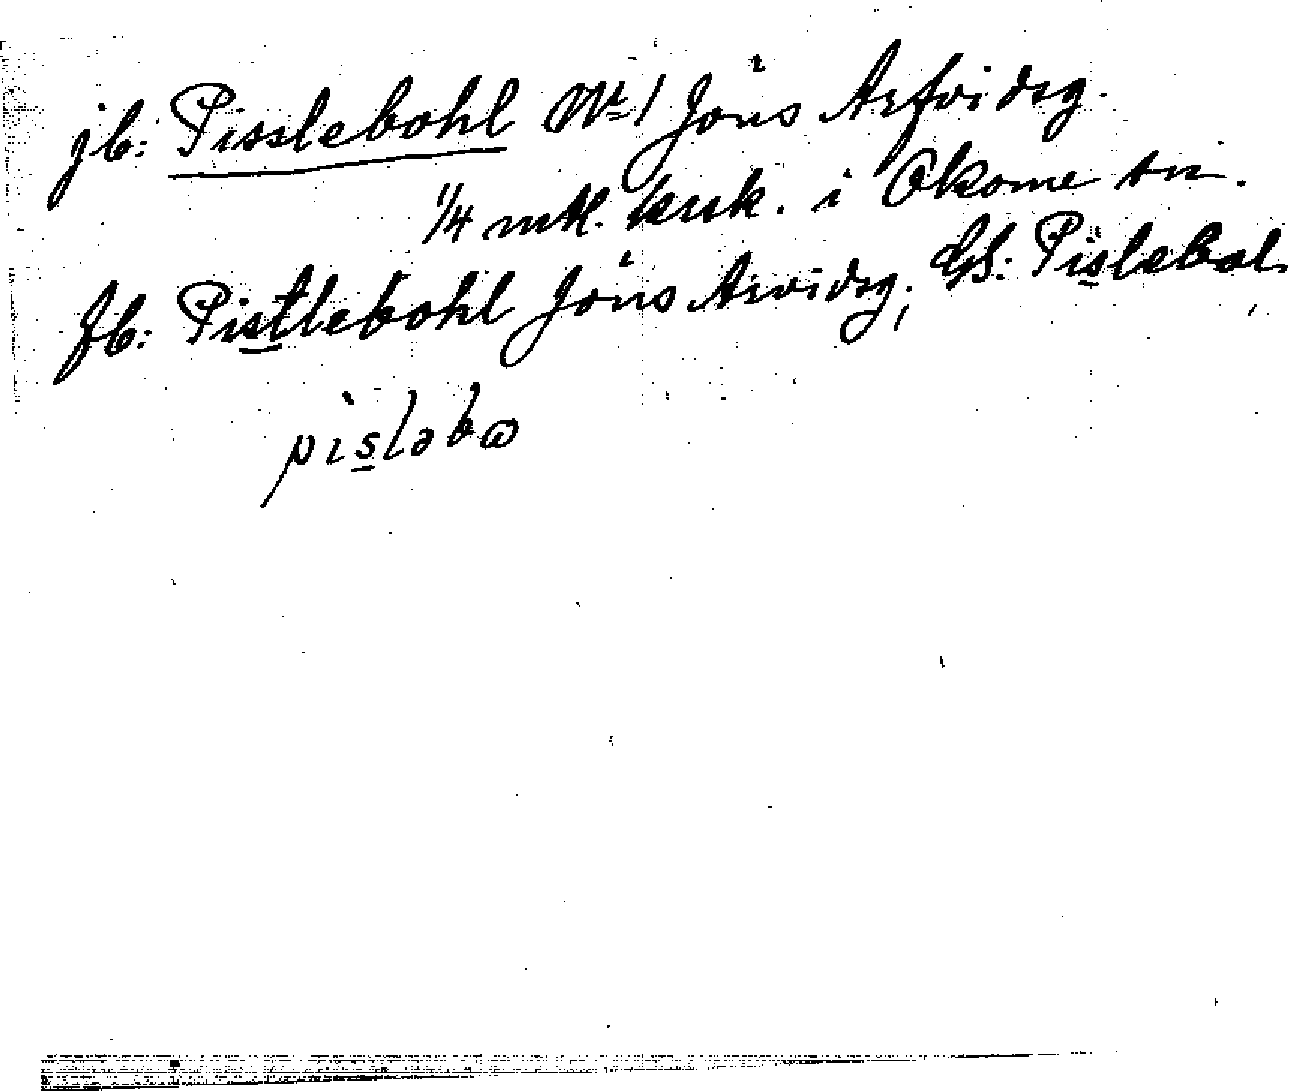 jb: Pisslebohl No 1 Jöns Arfvidsg.
1/4 mtl. krsk. i Okome sn.
Jb: Pistlebohl Jöns Arvidsg., GS: Pislebol.
pisləbω